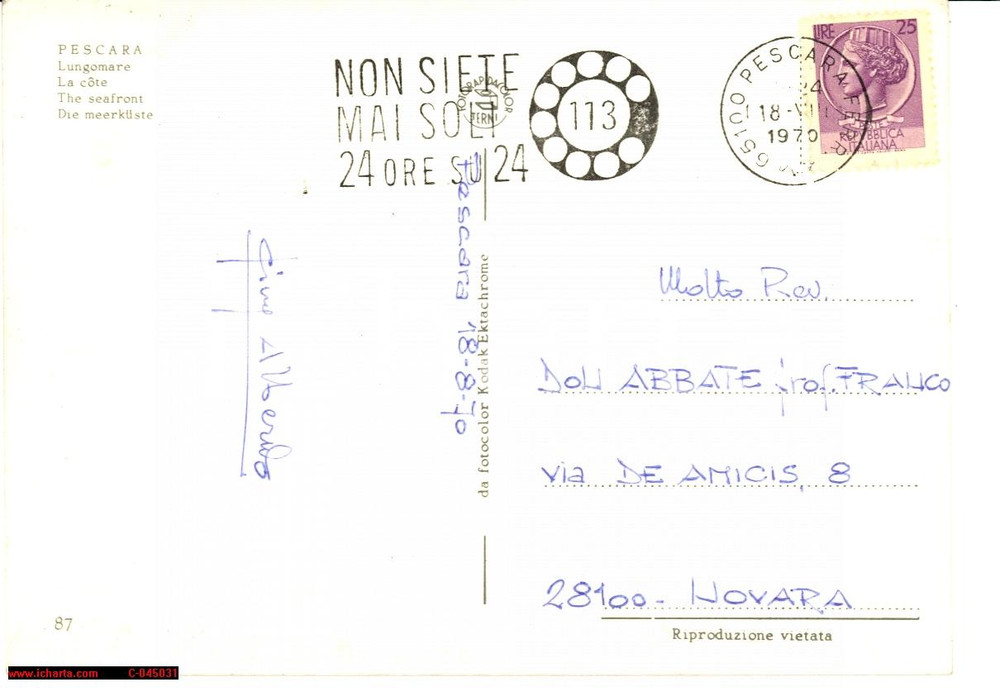 PESCARA
Lungomare
La côte
The seafront
Die meerküste
NON SIETE
MAI SOLI
24 ORE SU 24
113
FOTORAPIDACOLOR
TERNI
65100 PESCARA FERR
24
18-VIII
1970
LIRE 25
POSTE
REPUBBLICA
ITALIANA
Pescara 18-8-70
da fotocolor Kodak Ektachrome
Alberto
Molto Rev.
DON ABBATE prof. FRANCO
via DE AMICIS, 8
28100 - NOVARA
Riproduzione vietata
87
www.icharta.com C-045031